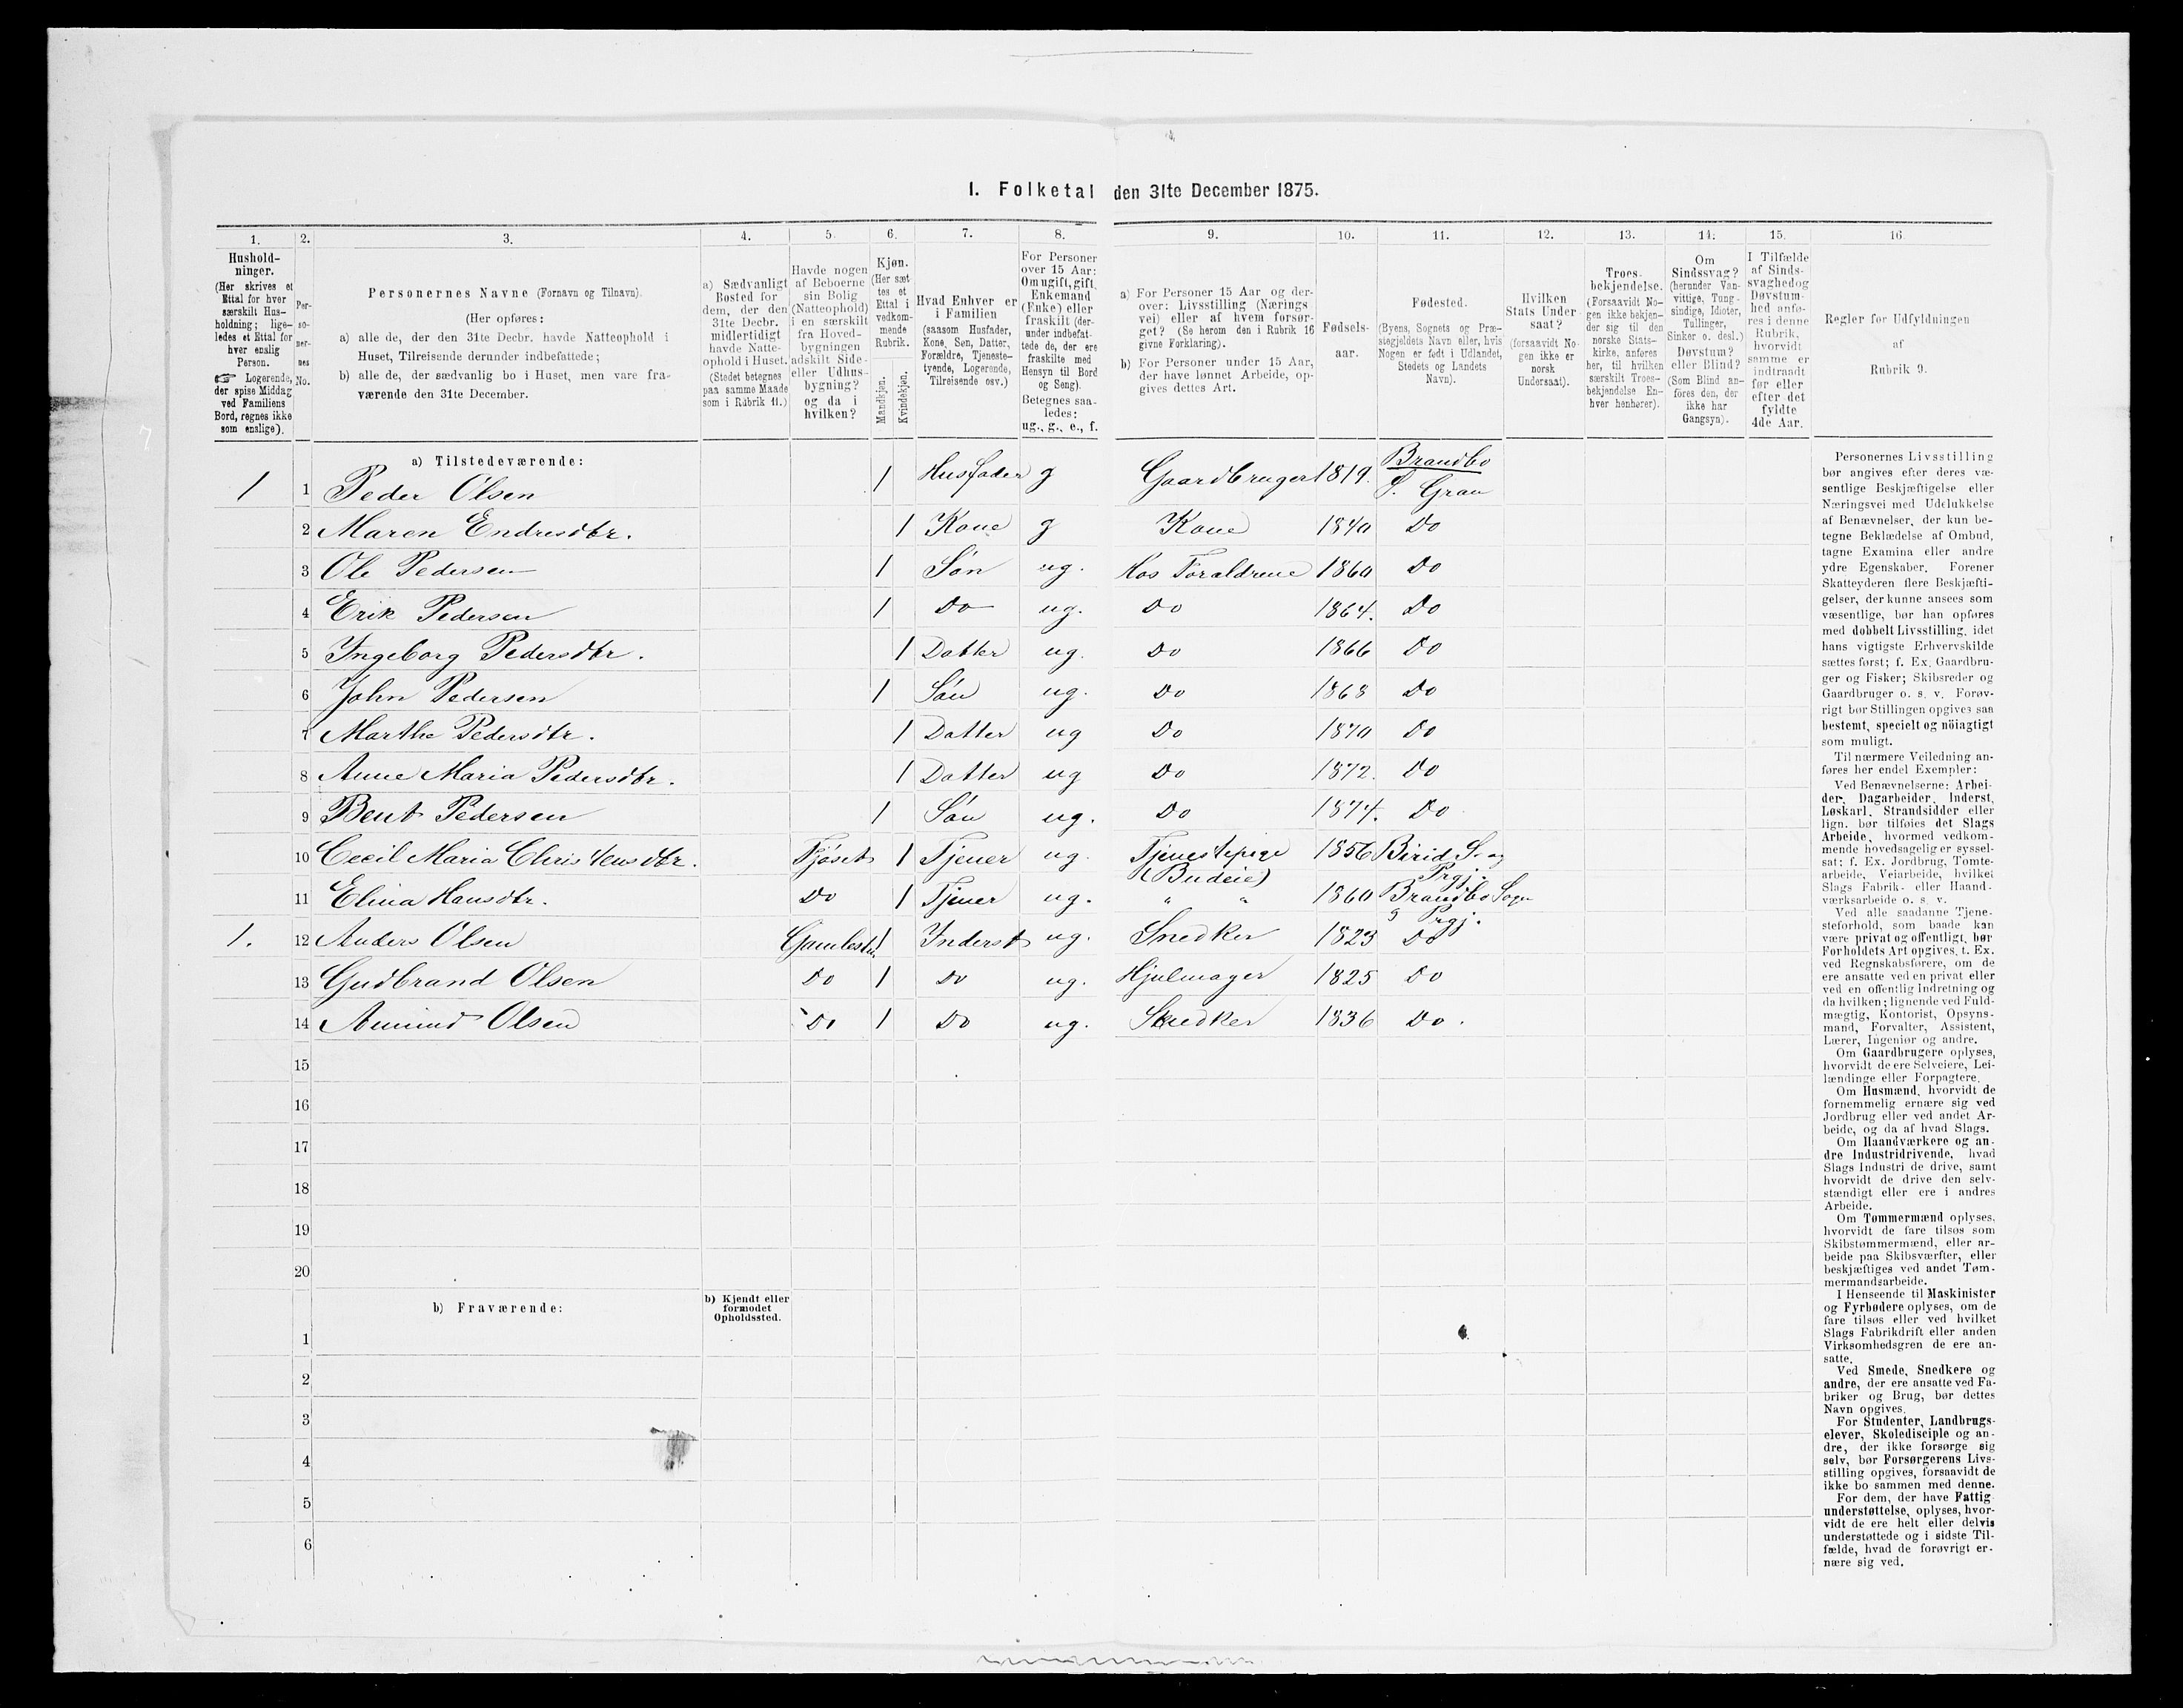 I. Folketal den 31te December 1875.
1. 2. 3. 4. 5. 6. 7. 8. 9. 10. 11. 12. 13. 14. 15. 16.
Hushold-
ninger.
(Her skrives et
Ettal for hver
særskilt Hus-
holdning; lige-
ledes et Ettal for
hver enslig
Person.
☞ Logerende,
der spise Middag
ved Familiens
Bord, regnes ikke
som enslige).
Per-
so-
ner-
nes
No.
Personernes Navne (Fornavn og Tilnavn).
(Her opføres:
a) alle de, der den 31te Decbr. havde Natteophold i
Huset, Tilreisende derunder indbefattede;
b) alle de, der sædvanlig bo i Huset, men vare fra-
værende den 31te December.
a) Sædvanligt
Bosted for
dem, der den
31te Decbr.
midlertidigt
havde Natte-
ophold i Huset.
(Stedet betegnes
paa samme Maade
som i Rubrik 11.)
Havde nogen
af Beboerne
sin Bolig
(Natteophold)
i en særskilt
fra Hoved-
bygningen
adskilt Side-
eller Udhus-
bygning?
og da i
hvilken?
Kjøn.
(Her sæt-
tes et
Ettal i
vedkom-
mende
Rubrik.
Mandkjøn.
Kvindekjøn.
Hvad Enhver er
i Familien
(saasom Husfader,
Kone, Søn, Datter,
Forældre, Tjeneste-
tyende, Logerende,
Tilreisende osv.)
For Personer
over 15 Aar:
Om ugift, gift,
Enkemand
(Enke) eller
fraskilt (der-
under indbefat-
tede de, der ere
fraskilte med
Hensyn til Bord
og Seng).
Betegnes saa-
ledes:
ug., g., e., f.
a) For Personer 15 Aar og der-
over: Livsstilling (Nærings
vei) eller af hvem forsør-
get? (Se herom den i Rubrik 16
givne Forklaring).
b) For Personer under 15 Aar,
der have lønnet Arbeide, op-
gives dettes Art.
Fødsels-
aar.
Fødested.
(Byens, Sognets og Præ-
stegjeldets Navn eller, hvis
Nogen er født i Udlandet,
Stedets og Landets
Navn).
Hvilken
Stats Under-
saat?
(forsaavidt No-
gen ikke er
norsk
Undersaat).
Troes-
bekjendelse.
(Forsaavidt No-
gen ikke bekjen-
der sig til den
norske Stats-
kirke, anføres
her, til hvilken
særskilt Troes-
bekjendelse En-
hver henhører).
Om
Sindssvag?
(herunder Van-
vittige, Tung-
sindige, Idioter,
Tullinger,
Sinker o. desl.)
Døvstum?
eller Blind?
(Som Blind an-
føres den, der
ikke har
Gangsyn).
I Tilfælde
af Sinds-
svaghed og
Døvstum-
hed anfø-
res i denne
Rubrik,
hvorvidt
samme er
indtraadt
før eller
efter det
fyldte
4de Aar.
Regler for Udfyldningen
af
Rubrik 9.
a) Tilstedeværende:
1 1 Peder Olsen 1 Husfader g Gaardbruger 1819. Brandbo S. Gran
2 Maren Endresdtr. 1 Kone g Kone 1840 Do
3 Ole Pedersen 1 Søn ug. Hos Forældrene 1860 Do
4 Erik Pedersen 1 Do ug. Do 1864. Do
5 Ingeborg Pedersdtr. 1 Datter ug. Do 1866 Do
6 John Pedersen 1 Søn ug. Do 1868 Do
7 Marthe Pedersdtr. 1 Datter ug Do 1870 Do
8 Anne Maria Pedersdtr. 1 Datter ug Do 1872. Do
9 Bent Pedersen 1 Søn ug. Do 1874. Do
10 Cecil Maria Christensdtr. Fjøset 1 Tjener ug. Tjenestepige (Budeie) 1856 Birid S. og Prgj.
11 Elina Hansdtr. Do 1 Tjener ug. " " 1860 Brandbo Sogn Prgj.
1. 12 Anders Olsen 1 Inderst ug. Snedker 1823 Do
13 Gudbrand Olsen Do 1 Do ug. Hjulmager 1825 Do
14 Amund Olsen Do 1 Do ug. Snedker 1836 Do.
15
16
17
18
19
20
b) Fraværende:
b) Kjendt eller
formodet
Opholdssted.
1
2
3
4
5
6
Personernes Livsstilling
bør angives efter deres væ-
sentlige Beskjæftigelse eller
Næringsvei med Udelukkelse
af Benævnelser, der kun be-
tegne Beklædelse af Ombud,
tagne Examina eller andre
ydre Egenskaber. Forener
Skatteyderen flere Beskjæfti-
gelser, der kunne ansees som
væsentlige, bør han opføres
med dobbelt Livsstilling, idet
hans vigtigste Erhvervskilde
sættes først; f. Ex. Gaardbru-
ger og Fisker; Skibsreder og
Gaardbruger o. s. v. Forøv-
rigt bør Stillingen opgives saa
bestemt, specielt og nöiagtigt
som muligt.
Til nærmere Veiledning an-
føres her endel Exempler:
Ved Benævnelserne: Arbei-
der, Dagarbeider, Inderst,
Løskarl, Strandsidder eller
lign. bør tilføies det Slags
Arbeide, hvormed vedkom-
mende hovedsagelig er syssel-
sat; f. Ex. Jordbrug, Tomte-
arbeide, Veiarbeide, hvilket
Slags Fabrik- eller Haand-
værksarbeide o. s. v.
Ved alle saadanne Tjene-
steforhold, som baade kan
være privat og offentligt, bør
Forholdets Art opgives, t. Ex.
ved Regnskabsførere, om de
ere ansatte ved en privat eller
ved en offentlig Indretning og
da hvilken; lignende ved Fuld-
mægtig, Kontorist, Opsyns-
mand, Forvalter, Assistent,
Lærer, Ingeniør og andre.
Om Gaardbrugere oplyses,
hvorvidt de ere Selveiere, Lei-
lændinge eller Forpagtere.
Om Husmænd, hvorvidt de
fornemmelig ernære sig ved
Jordbrug eller ved andet Ar-
beide, og da af hvad Slags.
Om Haandværkere og an-
dre Industridrivende, hvad
Slags Industri de drive, samt
hvorvidt de drive den selv-
stændigt eller ere i andres
Arbeide.
Om Tømmermænd oplyses,
hvorvidt de fare tilsøs som
Skibstømmermænd, eller ar-
beide paa Skibsværfter, eller
beskjæftiges ved andet Tøm-
mermandsarbeide.
I Henseende til Maskinister
og Fyrbødere oplyses, om de
fare tilsøs eller ved hvilket
Slags Fabrikdrift eller anden
Virksomhedsgren de ere an-
satte.
Ved Smede, Snedkere og
andre, der ere ansatte ved Fa-
briker og Brug, bør dettes
Navn opgives.
For Studenter, Landbrugs-
elever, Skoledisciple og an-
dre, der ikke forsørge sig
selv, bør Forsørgerens Livs-
stilling opgives, forsaavidt de
ikke bo sammen med denne.
For dem, der have Fattig-
understøttelse, oplyses, hvor-
vidt de ere helt eller delvis
understøttede og i sidste Til-
fælde, hvad de forøvrigt er-
nære sig ved.